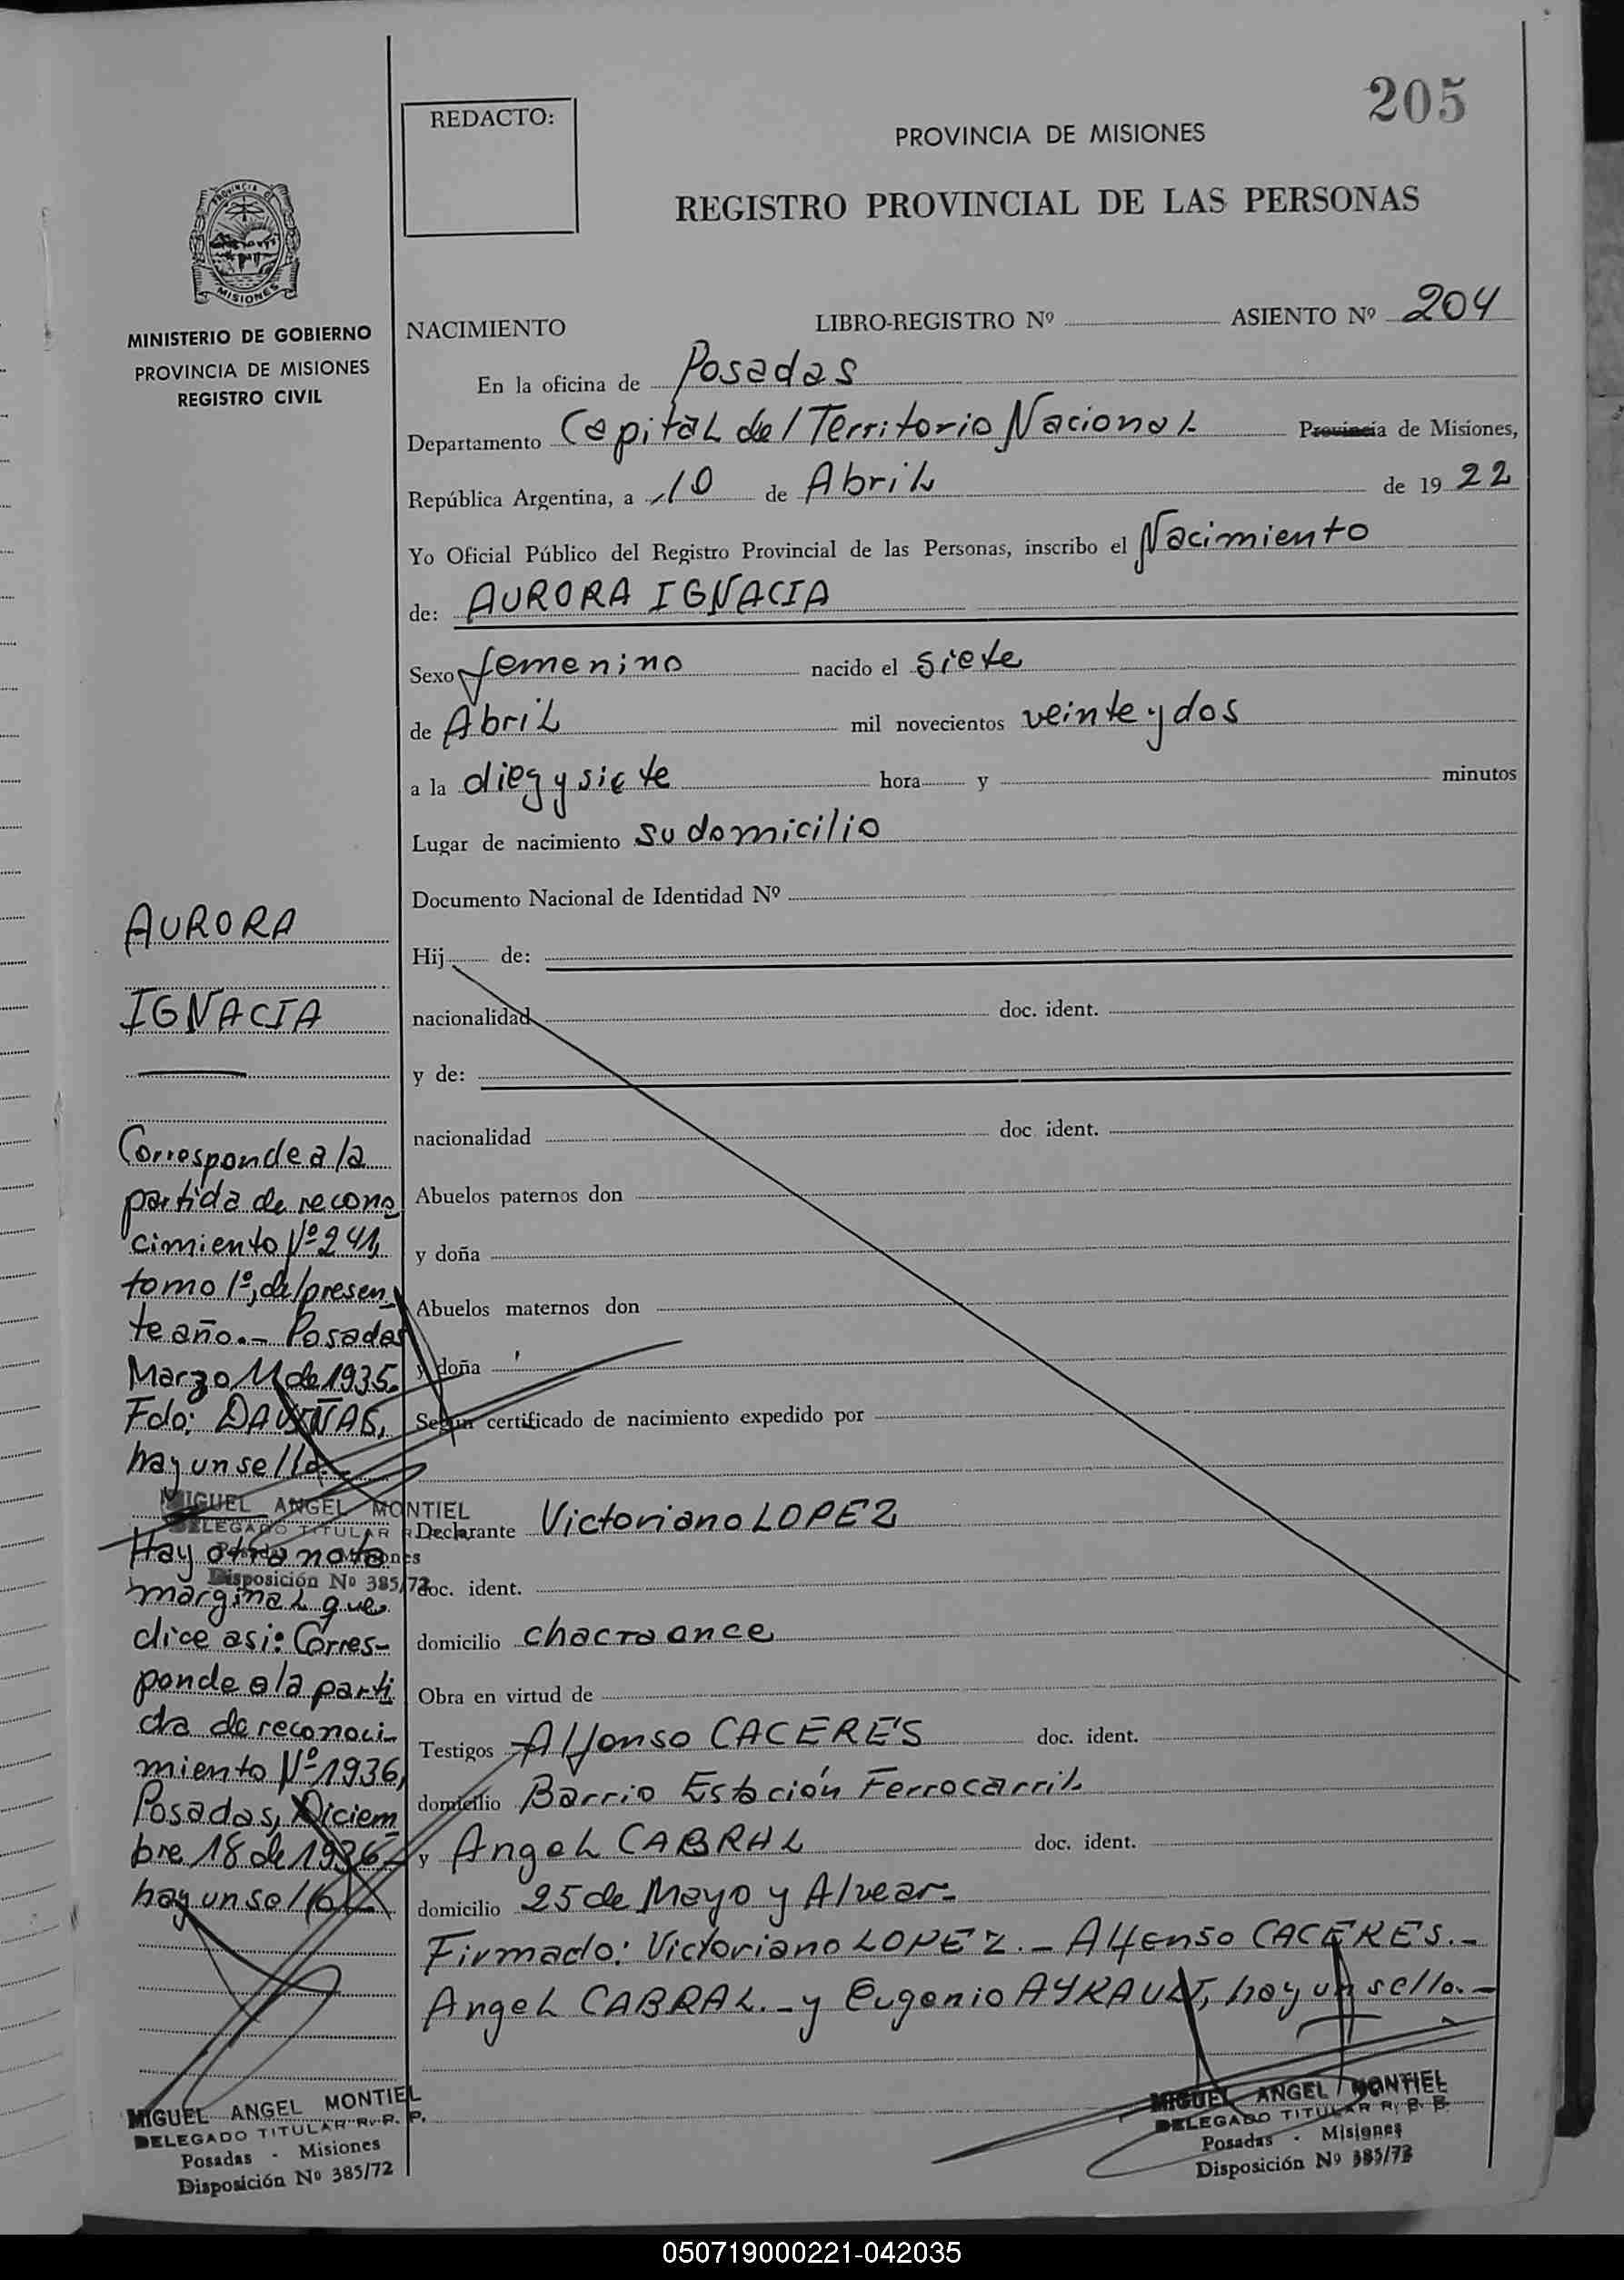 205
REDACTO:
PROVINCIA DE MISIONES
REGISTRO PROVINCIAL DE LAS PERSONAS
PROVINCIA DE
MISIONES
MINISTERIO DE GOBIERNO
PROVINCIA DE MISIONES
REGISTRO CIVIL
NACIMIENTO LIBRO-REGISTRO Nº ASIENTO Nº 204
En la oficina de Posadas
Departamento Capital del Territorio Nacional Provincia de Misiones,
República Argentina, a 10 de Abril de 1922
Yo Oficial Público del Registro Provincial de las Personas, inscribo el Nacimiento
de: AURORA IGNACIA
Sexo femenino nacido el siete
de Abril mil novecientos veinte y dos
a la diez y siete hora y minutos
Lugar de nacimiento su domicilio
Documento Nacional de Identidad Nº
Hij de:
nacionalidad doc. ident.
y de:
nacionalidad doc ident.
Abuelos paternos don
y doña
Abuelos maternos don
y doña
Según certificado de nacimiento expedido por
Declarante Victoriano LOPEZ
doc. ident.
domicilio chacra once
Obra en virtud de
Testigos Alfonso CACERES doc. ident.
domicilio Barrio Estación Ferrocarril
y Angel CABRAL doc. ident.
domicilio 25 de Mayo y Alvear-
Firmado: Victoriano LOPEZ.- Alfonso CACERES.-
Angel CABRAL.- y Eugenio AYRAULT, hay un sello.-
MIGUEL ANGEL MONTIEL
DELEGADO TITULAR R. P. P.
Posadas - Misiones
Disposición Nº 385/72
AURORA
IGNACIA
Corresponde a la
partida de recono
cimiento Nº 241,
tomo 1º, del presen
te año.- Posadas
Marzo 11 de 1935.
Fdo: DAVIÑAS,
hay un sello.-
MIGUEL ANGEL MONTIEL
DELEGADO TITULAR R
Posadas Misiones
Disposición Nº 385/72
Hay otra nota
marginal que
dice asi: Corres-
ponde a la parti
da de reconoci-
miento Nº 1936,
Posadas, Diciem
bre 18 de 1936-
hay un sello.-
MIGUEL ANGEL MONTIEL
DELEGADO TITULAR R. P. P.
Posadas - Misiones
Disposición Nº 385/72
050719000221-042035